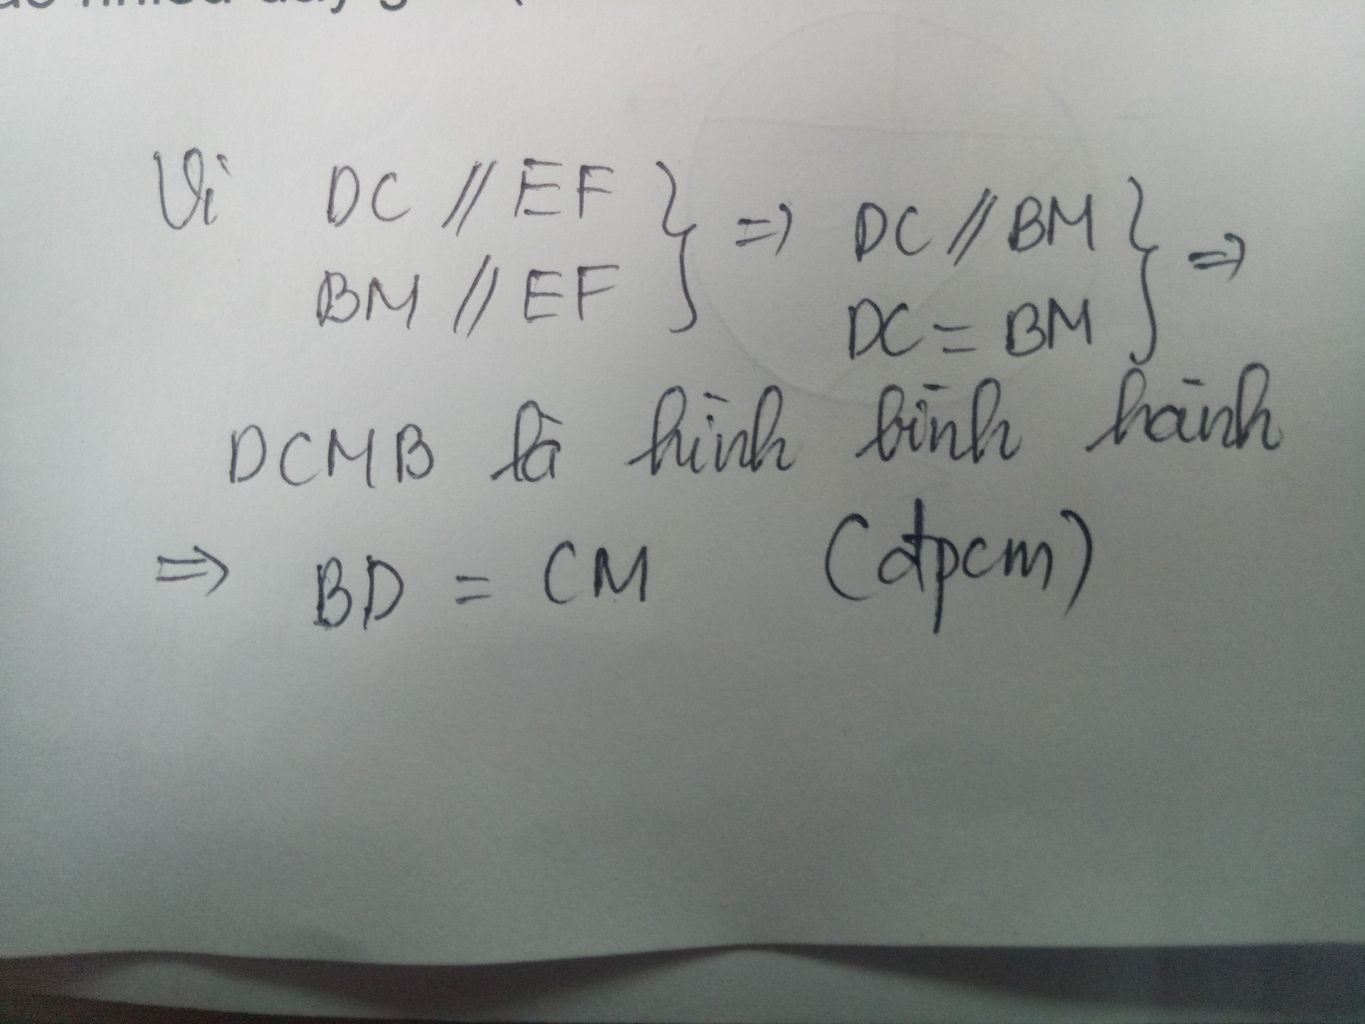 Vì DC // EF } => DC // BM } =>
BM // EF DC = BM
DCMB là hình bình hành
=> BD = CM (đpcm)